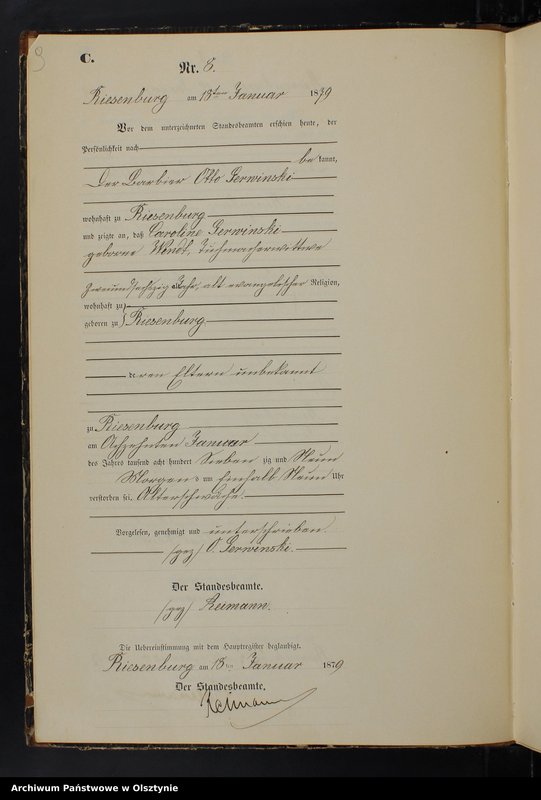 9
C.
Nr. 8.
Riesenburg am 18ten Januar 1879
Vor dem unterzeichneten Standesbeamten erschien heute, der
Persönlichkeit nach
be kannt,
Der Barbier Otto Serwinski
wohnhaft zu Riesenburg
und zeigte an, daß Caroline Serwinski
geborene Wendt, Tuchmacherwittwe
zweiundsechszig Jahr, alt evangelischer Religion,
wohnhaft zu
geboren zu Riesenburg
deren Eltern unbekannt
zu Riesenburg
am Achzehnten Januar
des Jahres tausend acht hundert Sieben zig und Neun
Morgens um Einhalb Neun Uhr
verstorben sei. Altersschwäche.
Vorgelesen, genehmigt und unterschrieben.
(gez) O. Serwinski.
Der Standesbeamte.
(gez) Reimann.
Die Uebereinstimmung mit dem Hauptregister beglaubigt.
Riesenburg am 18ten Januar 1879
Der Standesbeamte.
Reimann
Archiwum Państwowe w Olsztynie